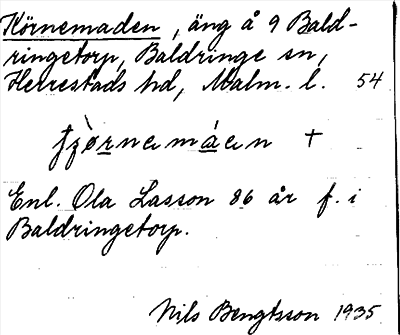 Körnemaden, äng å 9 Bald-
ringetorp, Baldringe sn,
Herrestads hd, Malm. l. 54
+
Enl. Ola Lasson 86 år f. i
Baldringetorp.
Nils Bengtsson 1935